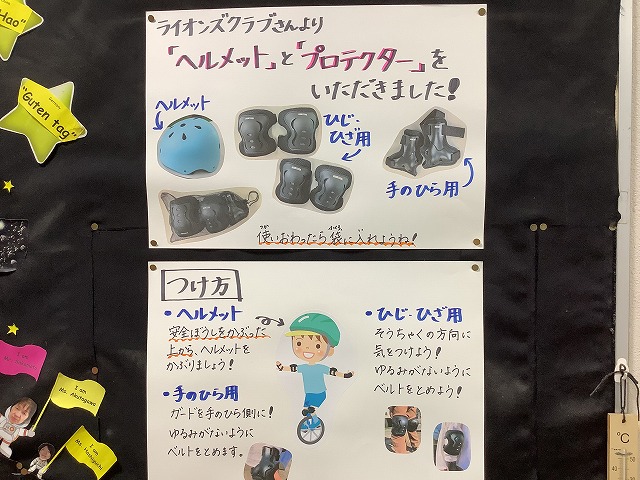 Hao"
"Guten tag"
ライオンズクラブさんより
「ヘルメット」と「プロテクター」を
いただきました!
ヘルメット
ひじ・
ひざ用
手のひら用
使いおわったら袋に入れようね!
つけ方
・ヘルメット
安全ぼうしをかぶった
上から、ヘルメットを
かぶりましょう!
・手のひら用
ガードを手のひら側に!
ゆるみがないように
ベルトをとめます。
・ひじ・ひざ用
そうちゃくの方向に
気をつけよう!
ゆるみがないように
ベルトをとめよう!
I am
I am
Ms. Akutagawa
I am
Ms.
℃
50
40